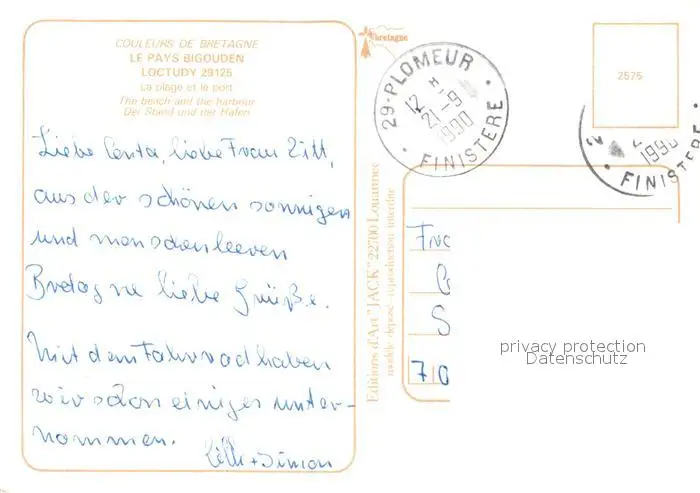 COULEURS DE BRETAGNE
LE PAYS BIGOUDEN
LOCTUDY 29125
La plage et le port
The beach and the harbour
Der Stand und der Hafen
bretagne
29-PLOMEUR
12 H
21-9
1990
FINISTERE
2575
1990
FINISTERE
Liebe liebe Frau Zitt,
aus der schönen sonnigen
und menschenleeren
Bretagne liebe Grüße.
Mit dem Fahrrad haben
wir schon einiges unter-
nommen.
+ Simon
Editions d'Art "JACK" 22700 Louannec
modèle déposé - reproduction interdite
S
710
privacy protection
Datenschutz